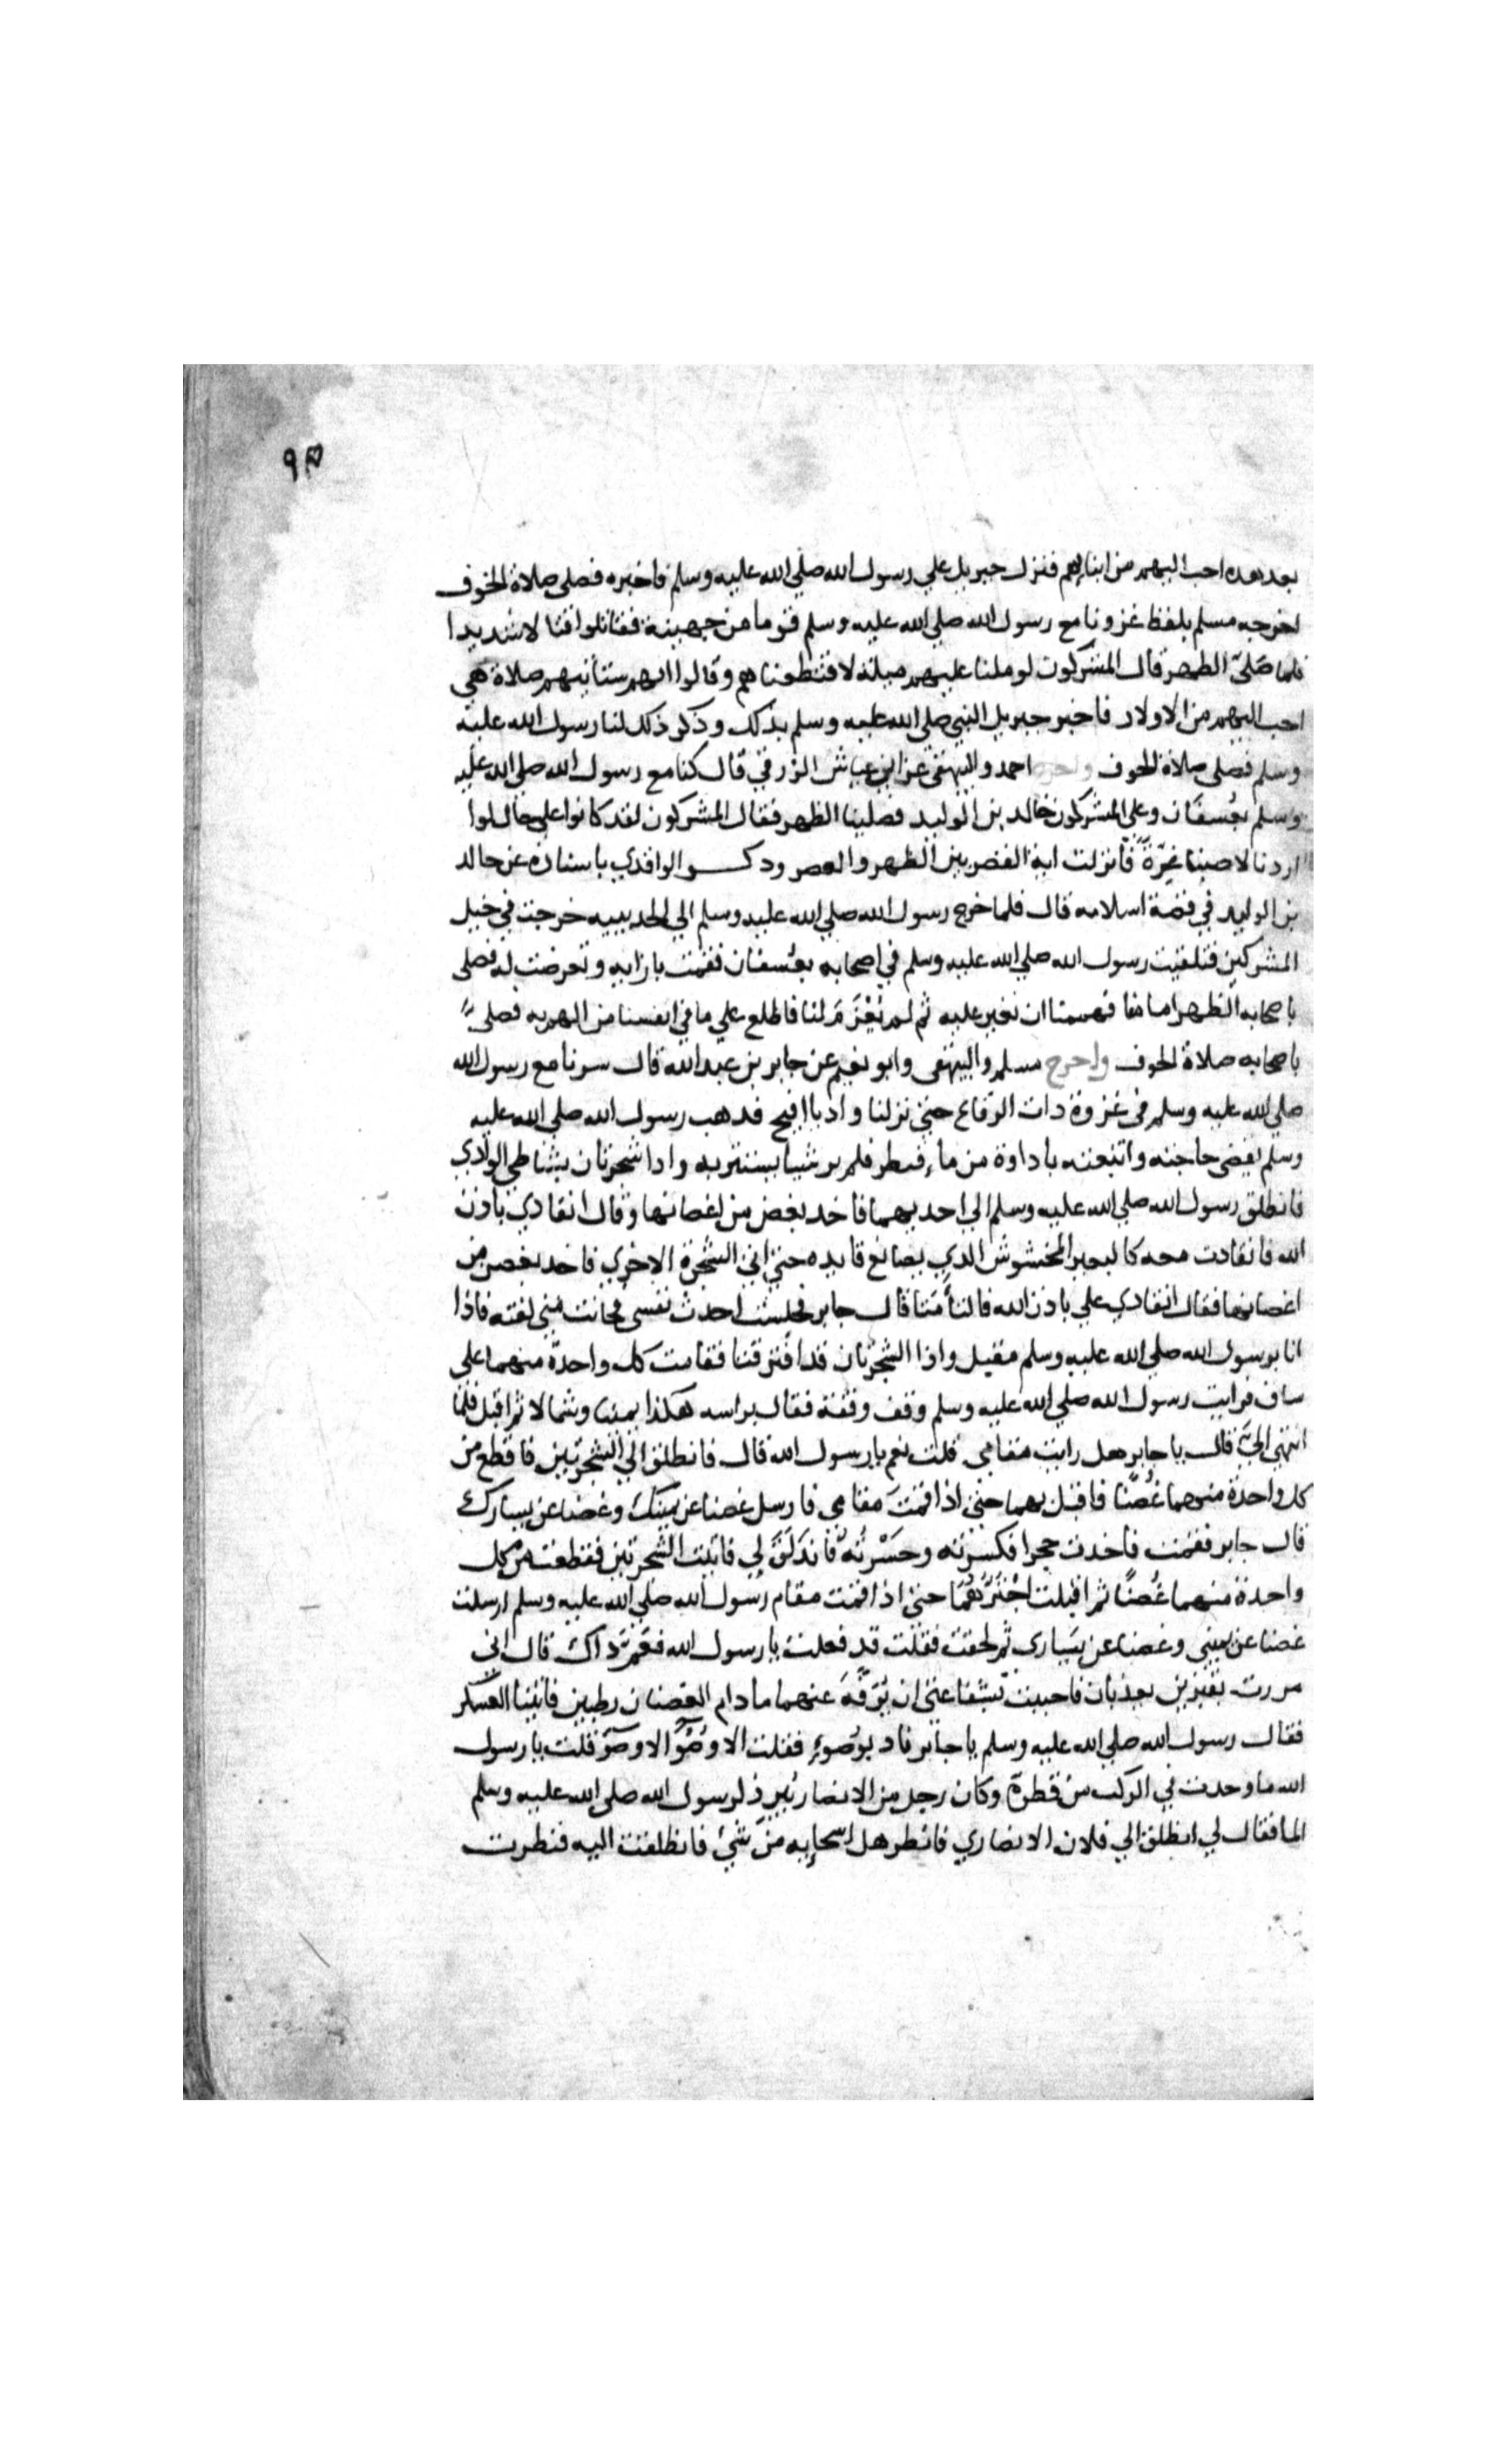 ٩٥
بعد هده احب اليهم من ابنايهم فنزل جبريل علي رسول الله صلي الله عليه وسلم فاخبره فصلى صلاة الخوف
اخرجه مسلم بلفظ غزونا مع رسول الله صلي الله عليه وسلم قوما من جهينة فقاتلوا قتالا شديدا
فلما صلى الظهر قال المشركون لو ملنا عليهم ميلة لاقتطعناهم وقالوا انهم ستأتيهم صلاة هي
احب اليهم من الاولاد فاخبر جبريل النبي صلي الله عليه وسلم بذلك وذكر ذلك لنا رسول الله عليه
وسلم فصلى صلاة الخوف واخرج احمد والبيهقي عن ابن عياش الزرقي قال كنا مع رسول الله صلي الله عليه
وسلم بعُسفَان وعلى المشركون خالد بن الوليد فصلينا الظهر فقال المشركون لقد كانوا على حال لوا
اردنا لاصبنا غِرّةً فانزلت اية القصر بين الظهر والعصر ودكر الواقدي باسناده عن خالد
بن الوليد في قصة اسلامه قال فلما خرج رسول الله صلي الله عليه وسلم الي الحديبيه خرجت في خيل
المشركين فتلقيت رسول الله صلي الله عليه وسلم في اصحابه بعُسفان فقمت بازايه وتعرضت له فصلى
باصحابه الظهر امامنا فهممنا ان نغير عليه ثم لم يُعْزَمَ لنا فاطلع علي ما في انفسنا من الهم به فصلى
باصحابه صلاة الخوف واخرج مسلم والبيهقى وابو نعيم عن جابر بن عبد الله قال سرنا مع رسول الله
صلي الله عليه وسلم في غزوة دات الرقاع حتي نزلنا واديا افيح فدهب رسول الله صلي الله عليه
وسلم يقضى حاجته واتبعته باداوة من ماء فنظر فلم ير شيا يستتر به وادا شجرتان بشاطي الوادي
فانطلق رسول الله صلي الله عليه وسلم الي احديهما فاخد بغصن من اغصانها وقال انقادي بادن
الله فانقادت معه كالبعير المخشوش الدي يصانع قايده حتي اتي الشجرة الاخري فاخد بغصن من
اغصانها فقال انقادي علي بادن الله فالتأمتا قال جابر فجلست احدث نفسي فحانت مني لفته فاذا
انا برسول الله صلي الله عليه وسلم مقبل واذا الشجرتان قد افترقتا فقامت كل واحدة منهما على
ساق فرايت رسول الله صلي الله عليه وسلم وقف وقفة فقال براسه هكذا يمينا وشمالا ثم اقبل فلما
انتهي اليّ قال يا جابر هل رايت مقامي قلت نعم يا رسول الله قال فانطلق الي الشجرتين فاقطع من
كل واحدة منهما غُصنًا فاقبل بهما حتي اذا قمتَ مقامي فارسل غصنا عن يمينك وغصنا عن يسارك
قال جابر فقمت فاخدت حجرا فكسرته وحَسَرتُه فاندَلَقَ لي فاتيت الشجرتين فقطعت من كل
واحدة منهما غُصنًا ثم اقبلت اجترّهما حتي اذا قمت مقام رسول الله صلي الله عليه وسلم ارسلت
غصنا عن يميني وغصنا عن يسَارى ثم لحقت فقلت قد فعلت يا رسول الله فعم داك قال اني
مررت بقبرين يعذبان فاحببت بشفاعتي ان يُرَفَّهَ عنهما ما دام الغصنان رطبين فاتينا العسكر
فقال رسول الله صلي الله عليه وسلم يا جابر ناد بوَضوءٍ فقلت الا وُضُوَ الا وضوَ قلت يا رسول
الله ما وجدت في الركب من قطرة وكان رجل من الانصار يُبرِد لرسول الله صلى الله عليه وسلم
الما فقال لي انطلق الي فلان الانصاري فانظر هل اشجابه من شيْ فانطلقت اليه فنظرت